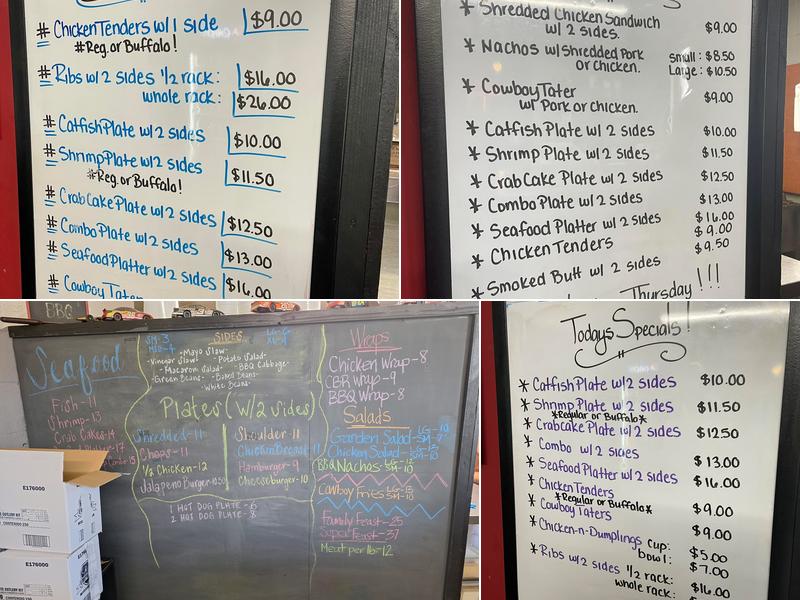 # Chicken Tenders w/ 1 side $9.00
#Reg. or Buffalo!
# Ribs w/ 2 sides 1/2 rack: $16.00
whole rack: $26.00
# Catfish Plate w/ 2 sides $10.00
# Shrimp Plate w/ 2 sides $11.50
#Reg. or Buffalo!
# Crab Cake Plate w/ 2 sides $12.50
# Combo Plate w/ 2 sides $13.00
# Seafood Platter w/ 2 sides $16.00
# Cowboy Tater
* Shredded Chicken Sandwich
w/ 2 sides. $9.00
* Nachos w/ Shredded Pork small: $8.50
or chicken. Large: $10.50
* Cowboy Tater $9.00
w/ Pork or chicken.
* Catfish Plate w/ 2 sides $10.00
* Shrimp Plate w/ 2 sides $11.50
* Crab Cake Plate w/ 2 sides $12.50
* Combo Plate w/ 2 sides $13.00
* Seafood Platter w/ 2 sides $16.00
* Chicken Tenders $9.00
* Smoked Butt w/ 2 sides $9.50
Thursday!!!
BBQ
Seafood
Fish-11
Shrimp-13
Crab Cakes-14
SIDES
SM-3
-Mayo Slaw-
-Vinegar Slaw- -Potato Salad-
-Macaroni Salad- -BBQ Cabbage-
-Green Beans- -Baked Beans-
-White Beans-
Plates (w/2 sides)
Shredded-11
Chops-11
1/2 Chicken-12
Jalapeno Burger-10.50
Shoulder-11
Chicken Breast-11
Hamburger-9
Cheeseburger-10
1 HOT DOG PLATE-6
2 HOT DOG PLATE-8
Wraps
Chicken Wrap-8
CBR Wrap-9
BBQ Wrap-8
Salads
Garden Salad-
Chicken Salad-
BBQ Nachos
SM-10
Cowboy Fries
SM-10
Family Feast-25
Super Feast-37
Meat per lb-12
E176000
E176000
Todays Specials!
* Catfish Plate w/2 sides $10.00
* Shrimp Plate w/2 sides $11.50
*Regular or Buffalo*
* Crabcake Plate w/2 sides $12.50
* Combo w/ 2 sides $13.00
* Seafood Platter w/2 sides $16.00
* Chicken Tenders
*Regular or Buffalo* $9.00
* Cowboy Taters $9.00
* Chicken-n-Dumplings cup: $5.00
bowl: $7.00
* Ribs w/2 sides 1/2 rack: $16.00
whole rack: